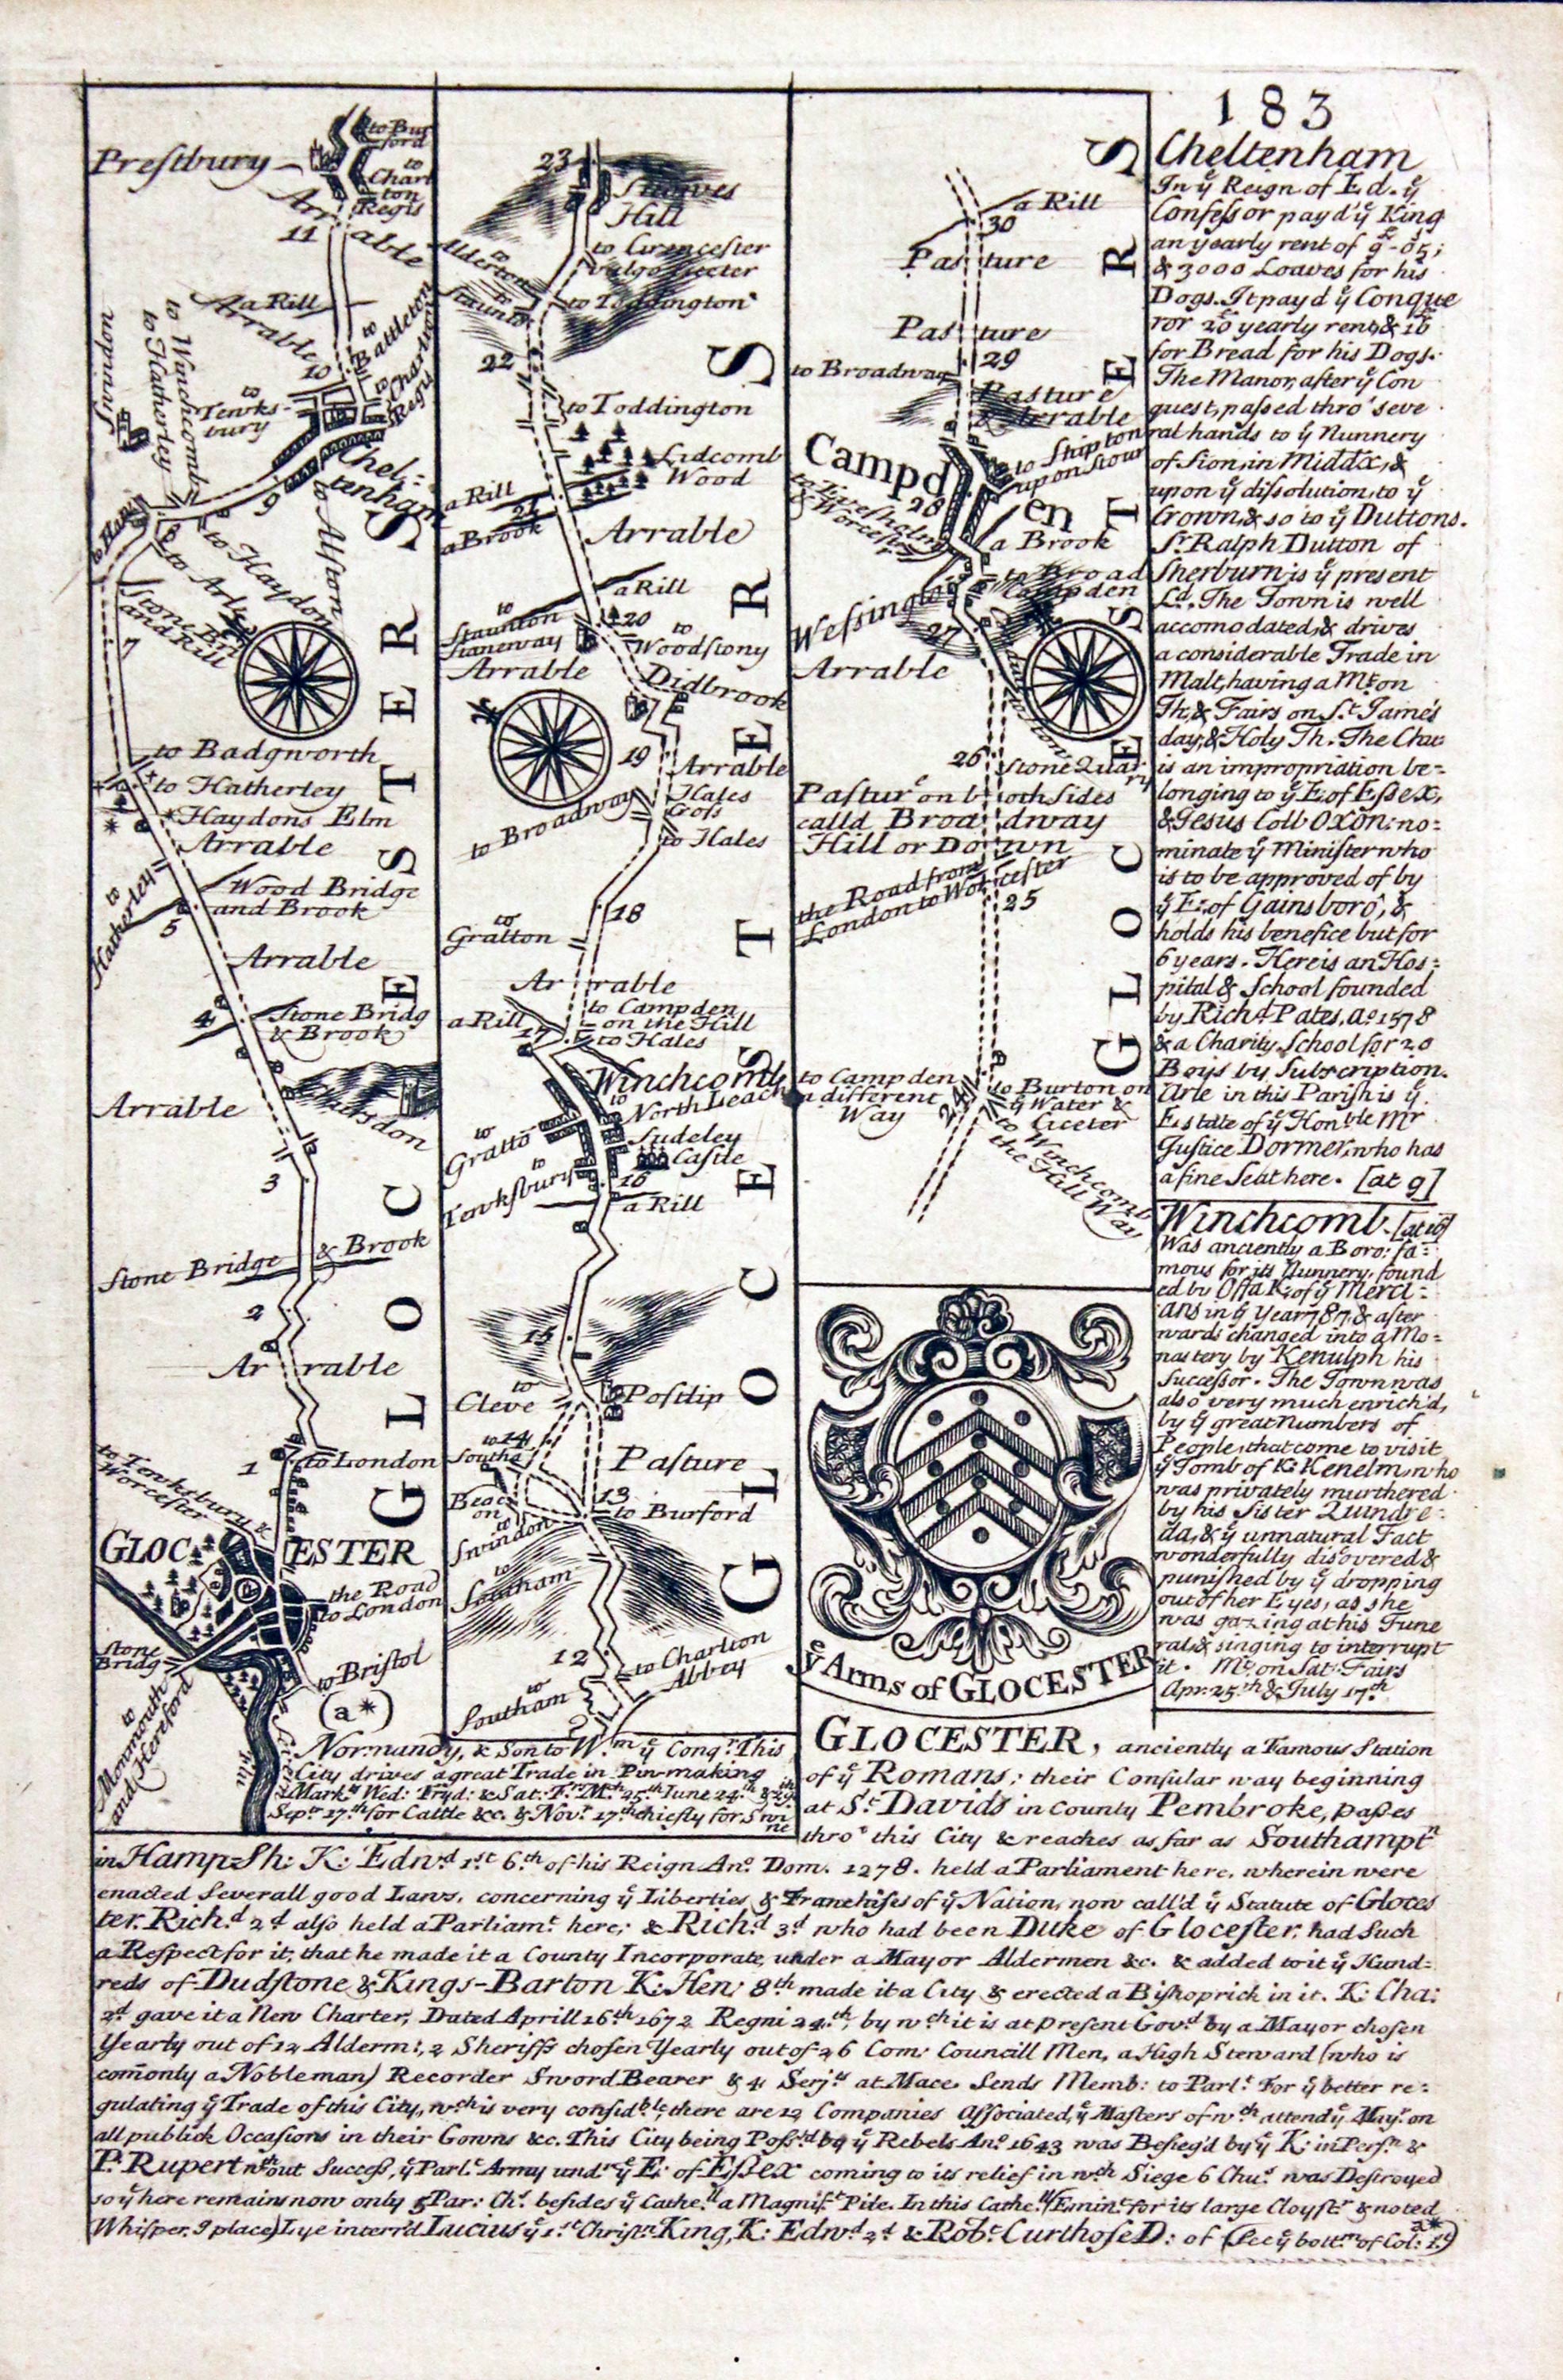 183
Prestbury
to Bur
ford
to
Charl
ton
Regis
Arr
able
11
a Rill
Arrable
10
to
Battleton
to
Charlton
Regis
Swindon
to Hatherley
to Winchcomb
to
Tewks-
bury
Chel-
tenham
9
to Alston
to Haydon
to Arle
Stone Bri
and Rill
7
to Badgworth
to Hatherley
Haydons Elm
Arrable
to
Hatherley
Wood Bridge
and Brook
5
Arrable
4
Stone Bridg
& Brook
Arrable
3
Stone Bridge & Brook
2
Ar rable
1
to London
to Tewksbury &
Worcester
GLOC ESTER
the Road
to London
Stone
Bridg
to Bristol
(a*)
to
Monmouth
and Hereford
GLOCESTER S
23
Stanwes
Hill
to Cirencester
vulgo Ciceter
to
Alderton
to
Staunton
to Toddington
22
to Toddington
Lidcomb
Wood
a Rill
21
a Brook
Arrable
a Rill
20
to
Staunton
Staneway
to
Woodstony
Arrable
Didbrook
19
Arrable
Hales
Cross
to Broadway
to Hales
18
to
Gratton
Ar rable
to Campden
on the Hill
to Hales
a Rill
17
Winchcomb
to
North Leach
to
Gratto
Sudeley
Castle
to
Tewksbury
16
a Rill
15
to
Cleve
Postlip
14
to
Southa
Pasture
13
to Burford
Beac
on
to
Swindon
to
Southam
12
to Charlton
Abbey
to
Southam
GLOCESTER S
a Rill
30
Pas ture
Pas ture
29
to Broadway
Pasture
& Arable
to Shipton
upon Stour
Campd
en
28
to Evesham
& Worcester
a Brook
to Broad
Campden
Wessington
27
Arrable
26
Stone Quar
ry
Pastur on both Sides
calld Broa dway
Hill or Down
the Road from
London to Worcester
25
to Campden
a different
Way
24
to Burton on
ye Water &
Ciceter
to Winchcomb
the Hill Way
GLOCESTER S
ye Arms of GLOCESTER
Cheltenham
In ye Reign of Ed. ye
Confessor pay'd ye King
an yearly rent of 9-05;
& 3000 Loaves for his
Dogs. It payd ye Conque
ror 20 yearly rent, & 16
for Bread for his Dogs.
The Manor, after ye Con
quest, passed thro' seve
ral hands to ye Nunnery
of Sion, in Middx, &
upon ye dissolution, to ye
Crown, & so to ye Duttons.
Sr. Ralph Dutton of
Sherburn is ye present
Ld. The Town is well
accomodated, & drives
a considerable Trade in
Malt, having a Mt. on
Th, & Fairs on St. James's
day, & Holy Th. The Chur
is an impropriation be-
longing to ye E. of Essex,
& Jesus Coll Oxon: no-
minate ye Minister who
is to be approved of by
ye E: of Gainsboro', &
holds his benefice but for
6 years. Here is an Hos-
pital & School founded
by Richd. Pates, ao. 1578
& a Charity School for 20
Boys by Subscription.
Arle in this Parish is ye
Estate of ye Honble Mr
Justice Dormer, who has
a fine Seat here. [at 9]
Winchcomb. [at 16]
Was anciently a Boro: fa-
mous for its Nunnery, found
ed by Offa K. of ye Merci-
ans in ye Year 787, & after
wards changed into a Mo-
nastery by Kenulph his
Successor. The Town was
also very much enrich'd,
by ye great numbers of
People, that come to visit
ye Tomb of K: Kenelm, who
was privately murthered
by his Sister Quendre-
da, & ye unnatural Fact
wonderfully discovered &
punished by ye dropping
out of her Eyes, as she
was gazing at his Fune
ral, & singing to interrupt
it. Mt. on Sat: Fairs
Apr. 25th & July 17th
GLOCESTER, anciently a Famous Station
of ye Romans; their Consular way beginning
at St. Davids in County Pembroke, passes
thro' this City & reaches as far as Southamptn
in Hamp-Sh: K: Edwd 1st 6th of his Reign Ano. Dom. 1278. held a Parliament here, wherein were
enacted Severall good Laws, concerning ye Liberties & Franchises of ye Nation, now call'd ye Statute of Gloces
ter. Richd 2d also held a Parliamt here; & Richd 3d who had been Duke of Glocester, had Such
a Respect for it, that he made it a County Incorporate, under a Mayor Aldermen &c. & added to it ye Hund-
reds of Dudstone & Kings-Barton K: Hen: 8th made it a City & erected a Bishoprick in it. K: Cha:
2d gave it a New Charter, Dated Aprill 16th 1672 Regni 24th, by wch it is at present Govd by a Mayor chosen
Yearly out of 12 Alderm:, 2 Sheriffs chosen Yearly out of 26 Com: Councill Men, a High Steward (who is
comonly a Nobleman) Recorder Sword Bearer & 4 Serjts at Mace. Sends Memb: to Parlt. For ye better re-
gulating ye Trade of this City, wch is very considble, there are 12 Companies Associated, ye Masters of wch attend ye Mayr. on
all publick Occasions in their Gowns &c. This City being Poss'd by ye Rebels Ano. 1643 was Besieg'd by ye K: in Persn &
P: Rupert wthout Success, ye Parlt. Army undr ye E: of Essex coming to its relief in wch Siege 6 Chus was Destroyed
so yt here remains now only 5 Par: Chs. besides ye Cathell a Magnift Pile. In this Cathell (Eminent for its large Cloystr & noted
Whisper.g place) Lye interr'd Lucius ye 1st Christn King, K: Edwd 2d & Robt Curthose D: of (See ye bottm of Col: 1st) a*
Normandy, & Son to Wm ye Conqr. This
City drives a great Trade in Pin-making
Markts Wed: Fryd: & Sat: Frs Mch 25th June 24th & 29th
Sepr 17th for Cattle &c. & Novr 17th chiefly for Swi
ne